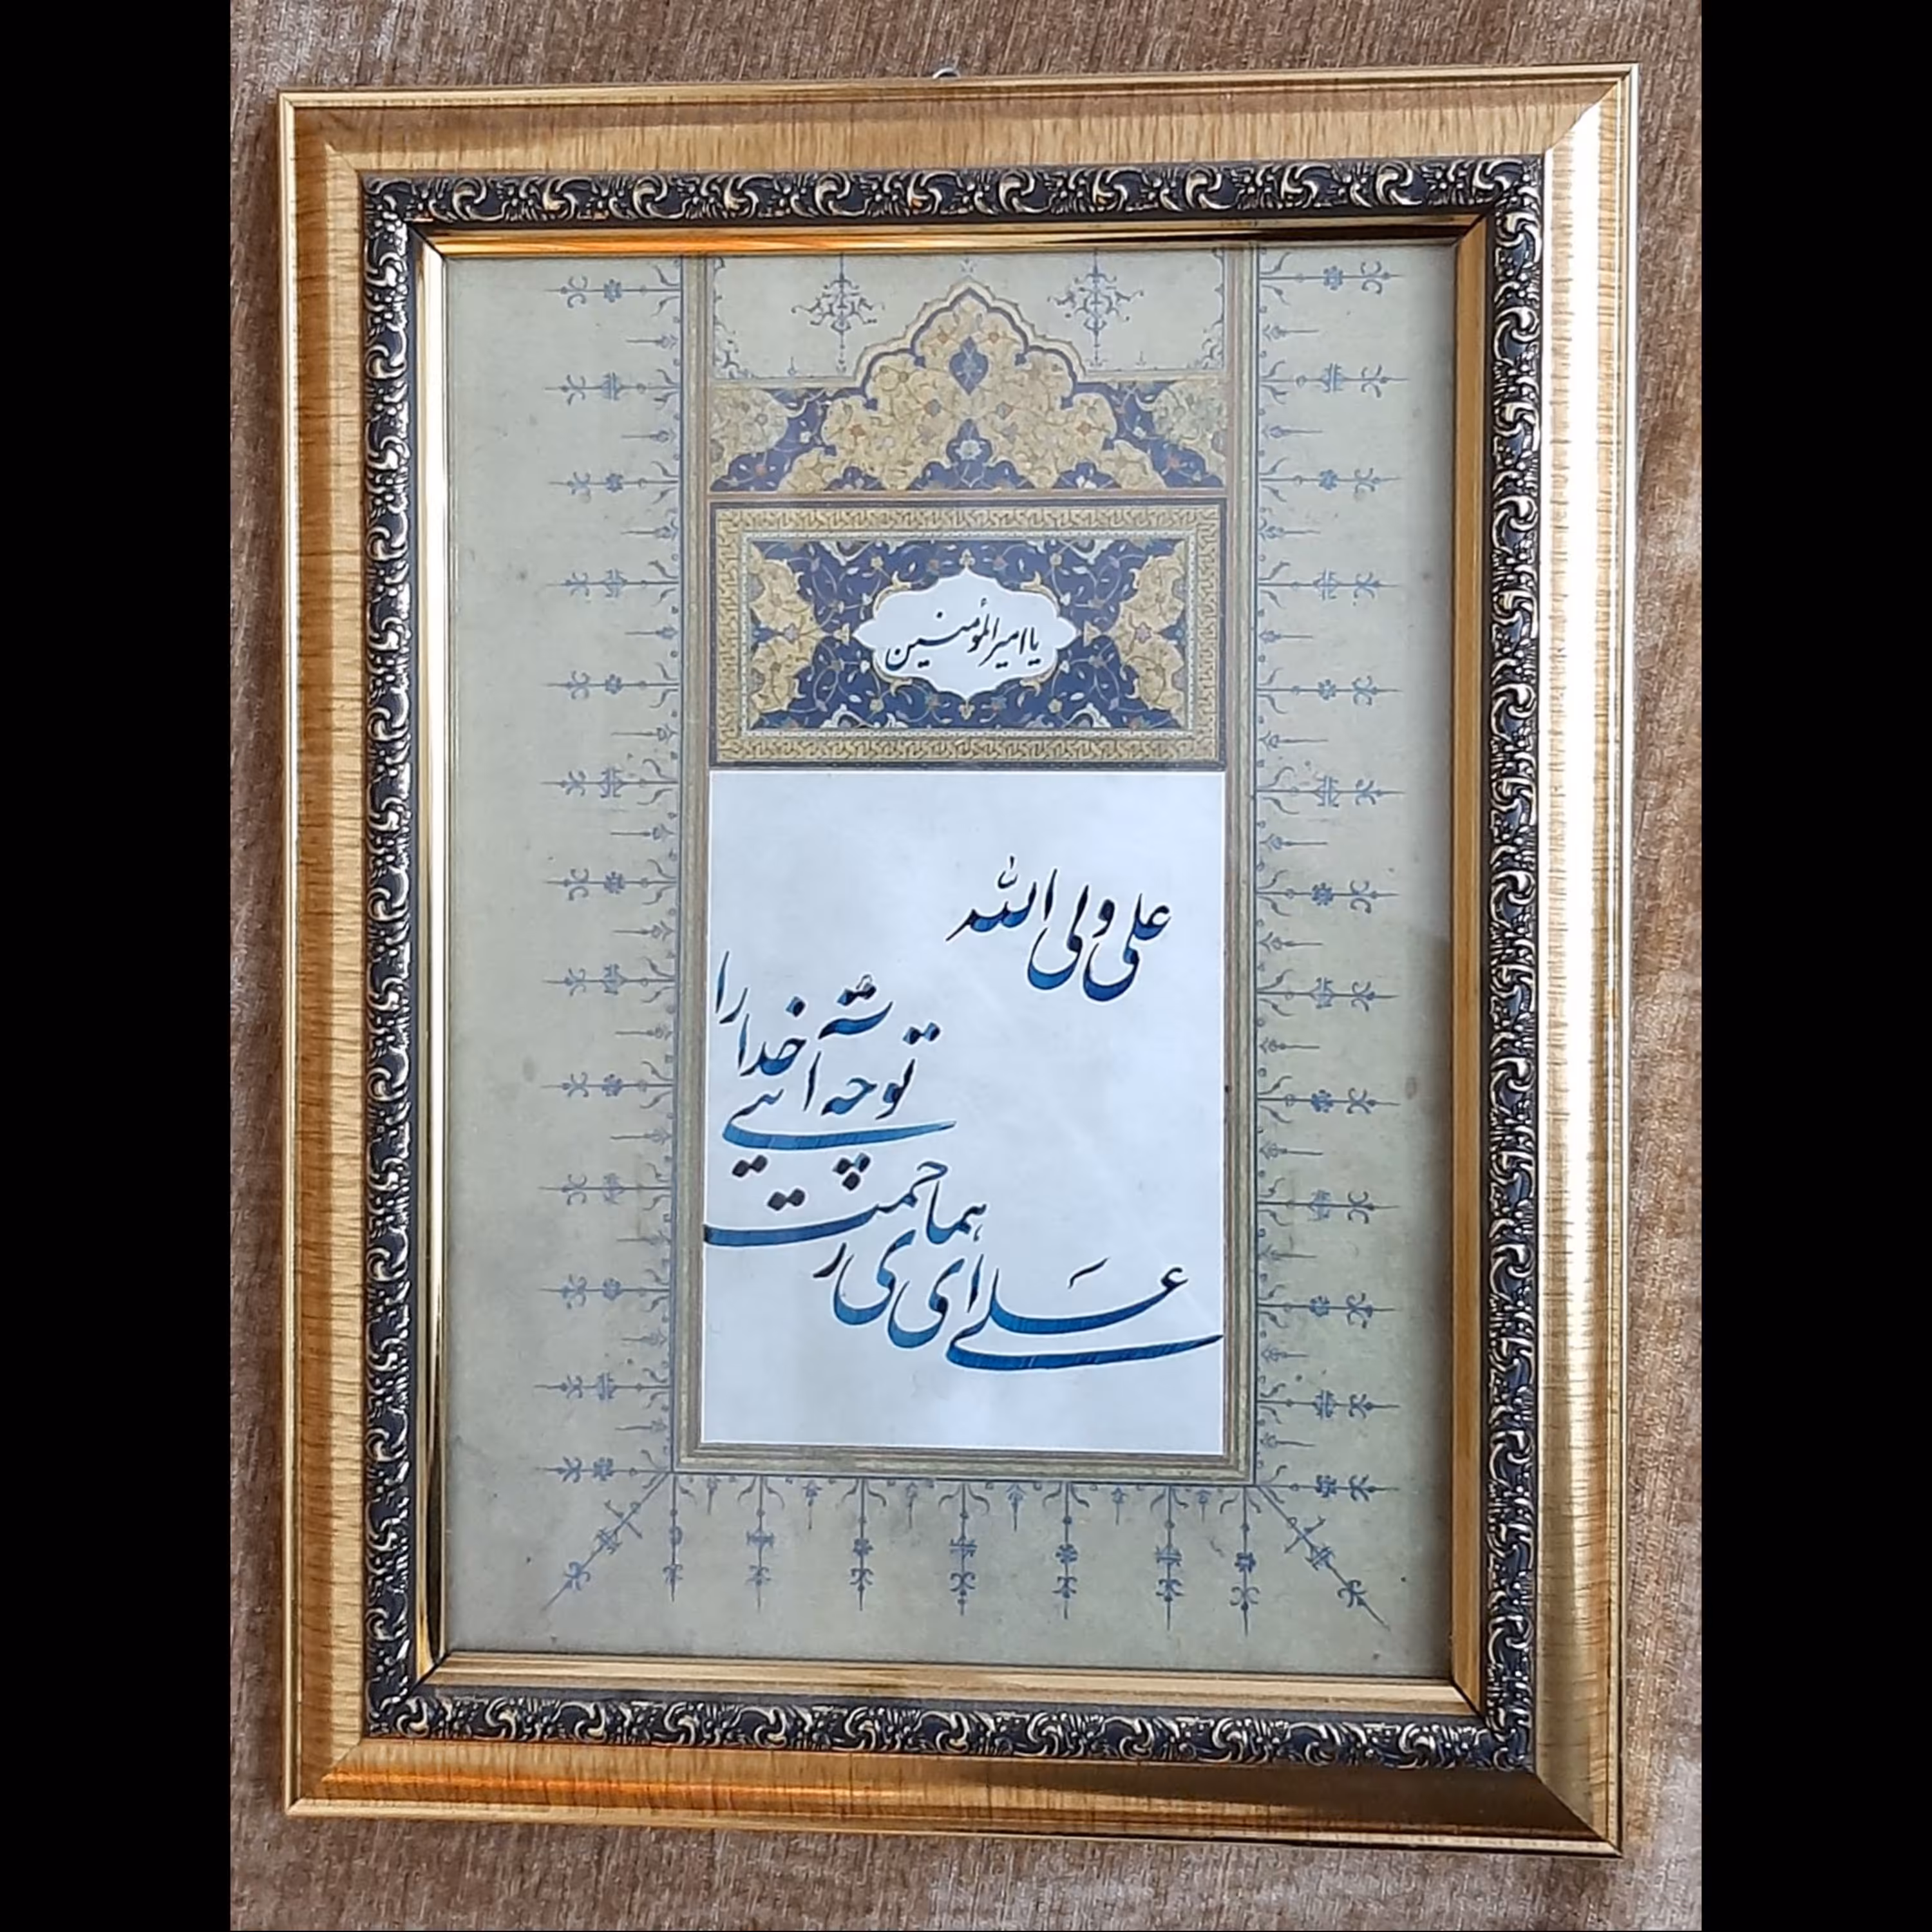 یا امیرالمؤمنین
علی ولی الله
علی ای همای رحمت
تو چه آیتی خدا را